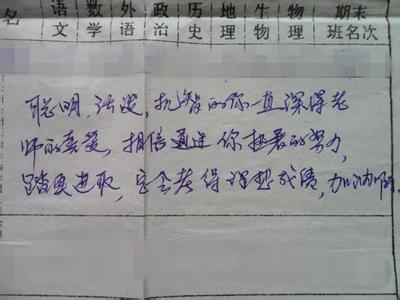 名 语文 数学 外语 政治 历史 地理 生物 物理 期末班名次
聪明,活泼,机智的你一直深得老
师的喜爱,相信通过你执着的努力,
踏实进取,定会考得理想成绩,加油啊!